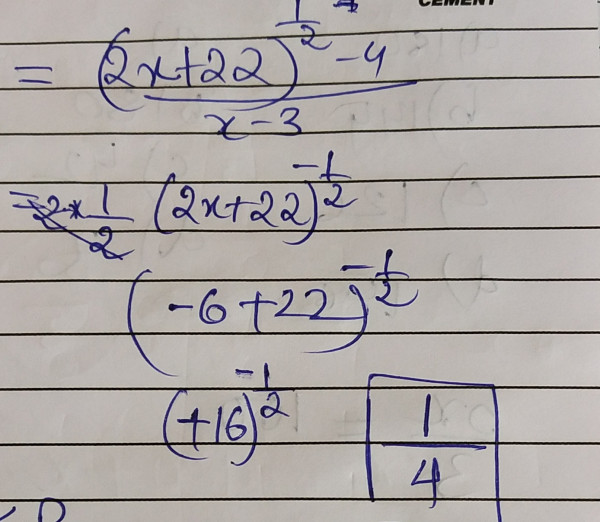 CEMENT
= (2x+22)^{1/2} - 4
x - 3
= 2 × 1/2 (2x+22)^{-1/2}
(-6+22)^{-1/2}
(+16)^{-1/2} 1/4